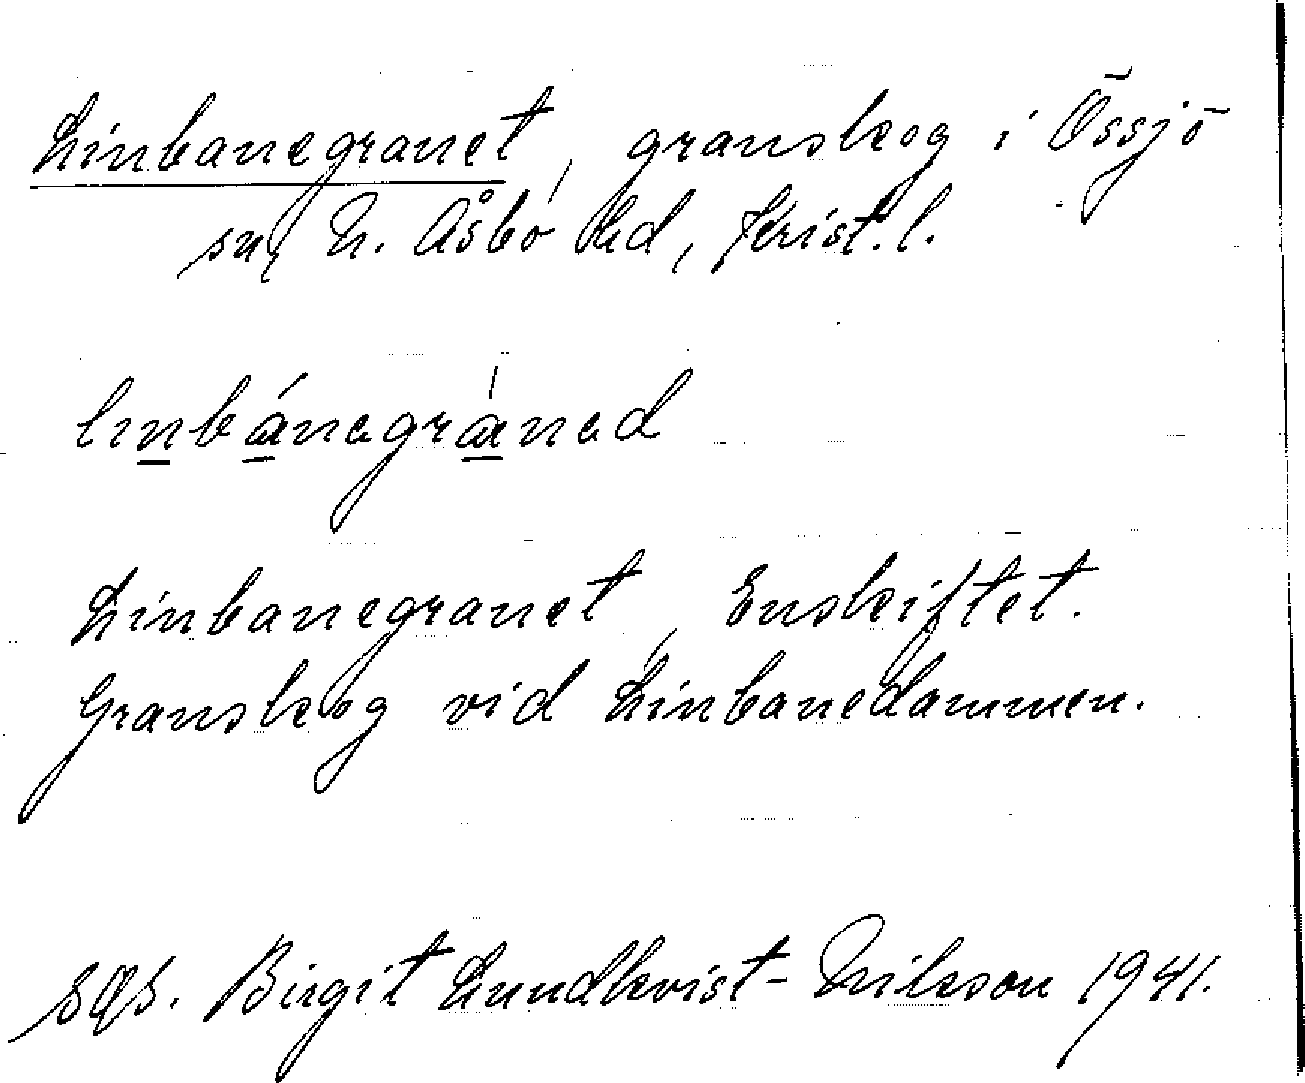 Linbanegranet, granskog i Össjö
sn, N. Åsbo hd, Krist. l.
linbánegráned
Linbanegranet, Enskiftet.
Granskog vid Linbanedammen.
Birgit Lundkvist-Nilsson 1941.